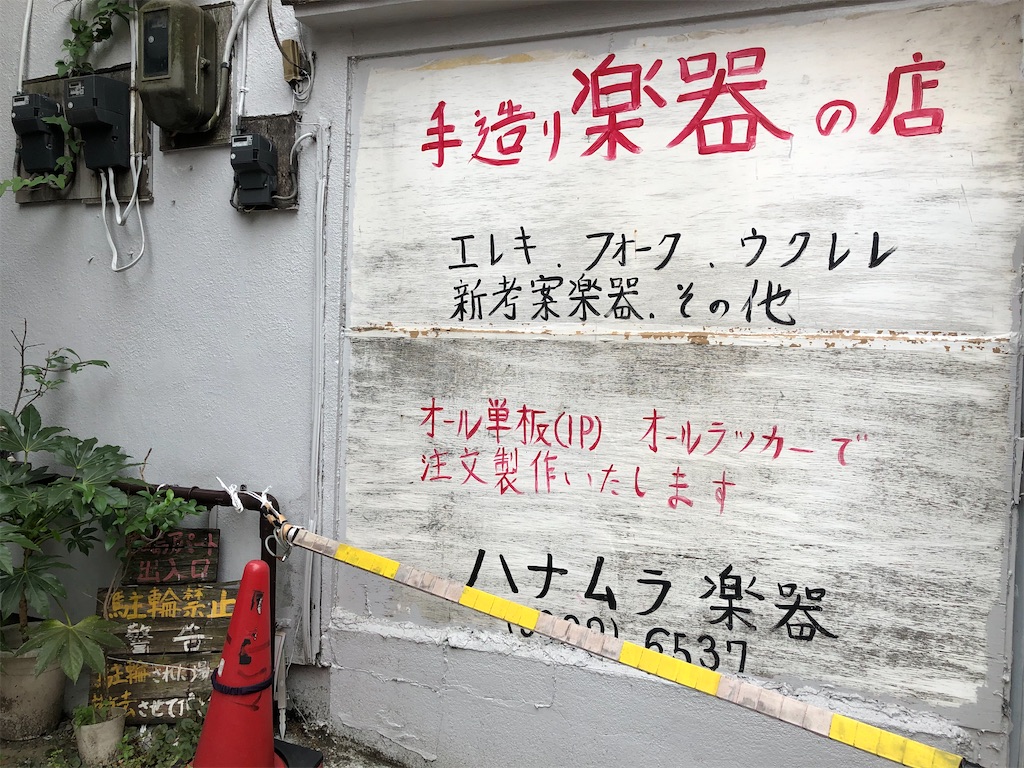 手造り楽器の店
エレキ、フォーク、ウクレレ
新考案楽器、その他
オール単板(1P) オールラッカーで
注文製作いたします
ハナムラ楽器
6537
アパート
出入口
駐輪禁止
警告
駐輪された場
させて